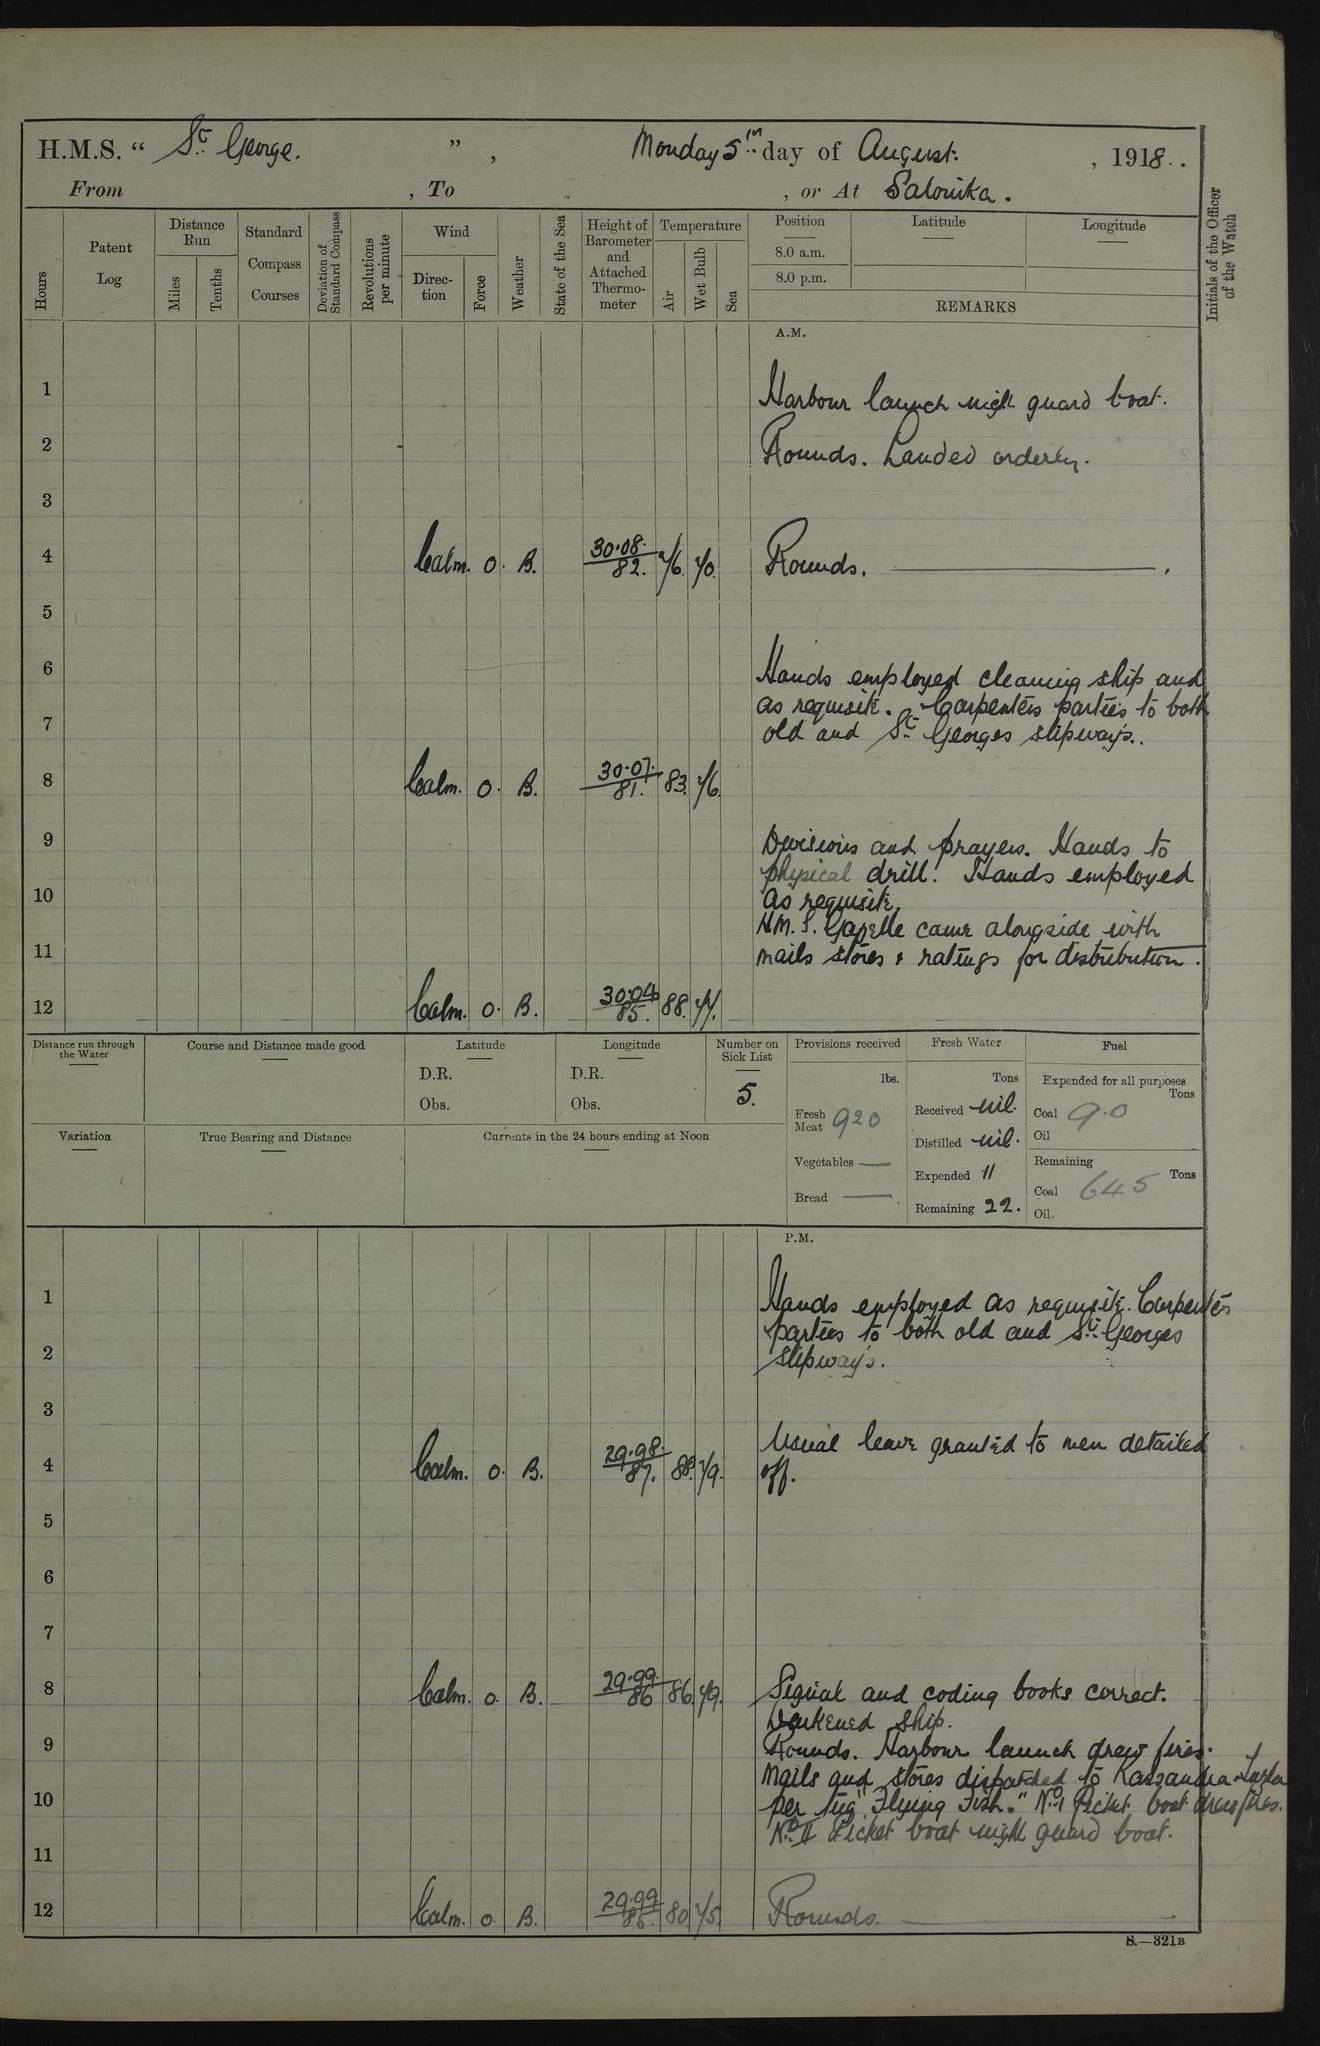 H.M.S. “ St George. ” , Monday 5th day of August. , 1918..
From , To , or At Salonika.
Hours
Patent Log
Distance Run
Miles
Tenths
Standard Compass Courses
Deviation of Standard Compass
Revolutions per minute
Wind
Direction
Force
Weather
State of the Sea
Height of Barometer and Attached Thermometer
Temperature
Air
Wet Bulb
Sea
Position
8.0 a.m.
8.0 p.m.
Latitude
Longitude
REMARKS
Initials of the Officer of the Watch
A.M.
1 Harbour launch night guard boat.
2 Rounds. Landed orderly.
3
4 Calm. 0. B. 30.08. 82. 76. 70. Rounds.
5
6 Hands employed cleaning ship and
as requisite. Carpenters parties to both
7 old and St Georges slipways..
8 Calm. 0. B. 30.07. 81. 83. 76.
9 Divisions and prayers. Hands to
physical drill. Hands employed
10 as requisite.
H.M.S. Gazelle came alongside with
11 mails stores & ratings for distribution.
12 Calm. 0. B. 30.04 85. 88. 77.
Distance run through the Water
Course and Distance made good
Latitude
D.R.
Obs.
Longitude
D.R.
Obs.
Number on Sick List
5.
Provisions received
lbs.
Fresh Meat 920
Vegetables —
Bread —
Fresh Water
Tons
Received nil.
Distilled nil.
Expended 11
Remaining 22.
Fuel
Expended for all purposes
Tons
Coal 9.0
Oil
Remaining
Tons
Coal 645
Oil
Variation
True Bearing and Distance
Currents in the 24 hours ending at Noon
P.M.
1 Hands employed as requisite. Carpenters
parties to both old and St. Georges
2 slipways.
3
Usual leave granted to men detailed
4 Calm. 0. B. 29.98. 87. 88. 79. off.
5
6
7
8 Calm. 0. B. 29.99. 86 86 79. Signal and coding books correct.
Darkened ship.
9 Rounds. Harbour launch drew fires.
Mails and stores dispatched to Kassandra
10 per tug "Flying Fish." No. 1 Picket boat drew fires.
No. II Picket boat night guard boat.
11
12 Calm. 0. B. 29.99 85. 80 75. Rounds.
S.—321B